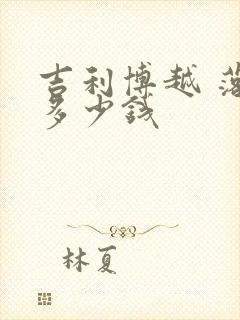 吉利博越 落
多少钱
林夏